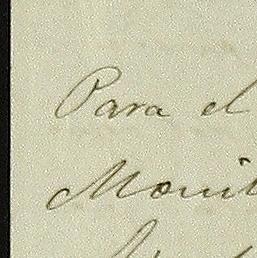 Para el
Monit